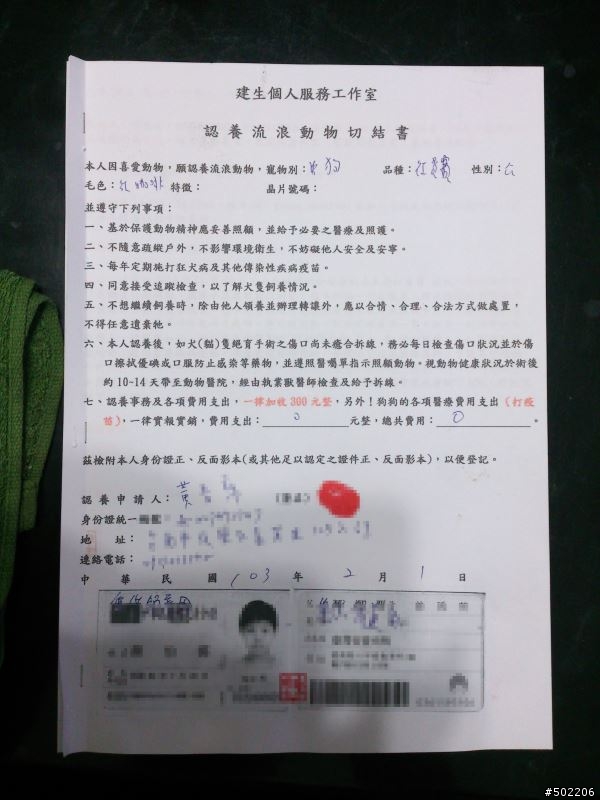 建生個人服務工作室
認養流浪動物切結書
本人因喜愛動物，願認養流浪動物，寵物別：犬狗 品種： 性別：公
毛色： 特徵： 晶片號碼：
並遵守下列事項：
一、基於保護動物精神應妥善照顧，並給予必要之醫療及照護。
二、不隨意疏縱戶外，不影響環境衛生，不妨礙他人安全及安寧。
三、每年定期施打狂犬病及其他傳染性疾病疫苗。
四、同意接受追蹤檢查，以了解犬隻飼養情況。
五、不想繼續飼養時，除由他人領養並辦理轉讓外，應以合情、合理、合法方式做處置，
不得任意遺棄牠。
六、本人認養後，如犬(貓)隻絕育手術之傷口尚未癒合拆線，務必每日檢查傷口狀況並於傷
口擦拭優碘或口服防止感染等藥物，並遵照醫囑單指示照顧動物。視動物健康狀況於術後
約 10-14 天帶至動物醫院，經由執業獸醫師檢查及給予拆線。
七、認養事務及各項費用支出，一律加收 300 元整，另外！狗狗的各項醫療費用支出（打疫
苗），一律實報實銷，費用支出：0元整，總共費用：0。
茲檢附本人身份證正、反面影本(或其他足以認定之證件正、反面影本)，以便登記。
認養申請人：黃
身份證統一
地 址：
連絡電話：
中華民國 103 年 2 月 1 日
#502206